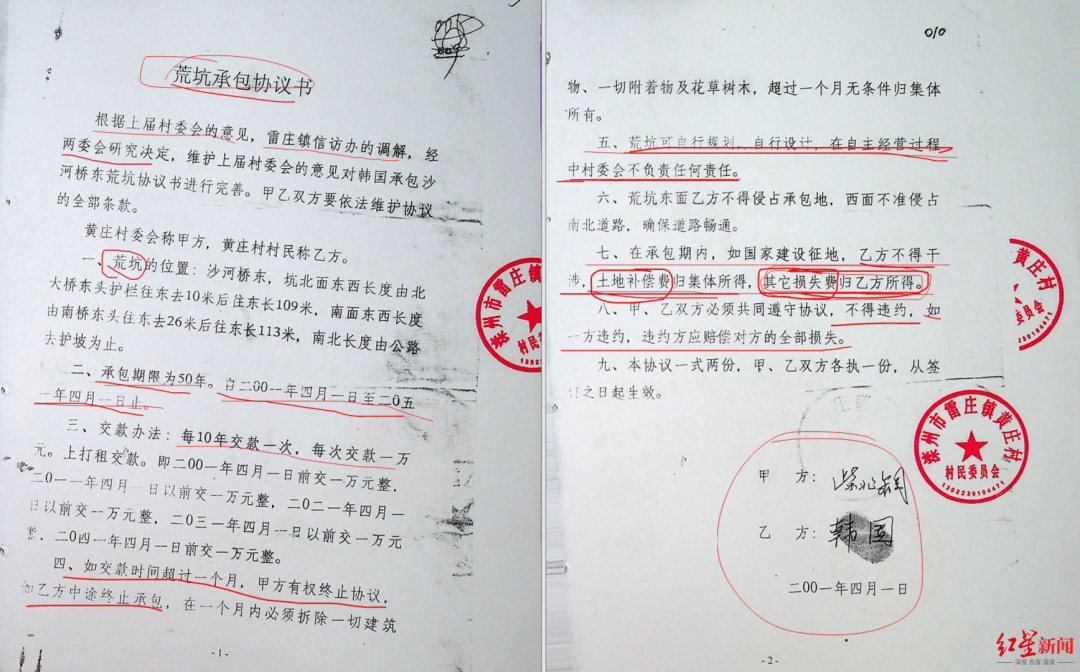 荒坑承包协议书
根据上届村委会的意见，雷庄镇信访办的调解，经
两委会研究决定，维护上届村委会的意见对韩国承包沙
河桥东荒坑协议书进行完善。甲乙双方要依法维护协议
的全部条款。
黄庄村委会称甲方，黄庄村村民称乙方。
一、荒坑的位置：沙河桥东，坑北面东西长度由北
大桥东头护栏往东去10米后往东长109米，南面东西长度
由南桥东头往东去26米后往东长113米，南北长度由公路
去护坡为止。
二、承包期限为50年。自二00一年四月一日至二0五
一年四月一日止。
三、交款办法：每10年交款一次，每次交款一万
元。上打租交款。即二00一年四月一日前交一万元整，
二0一一年四月一日以前交一万元整，二0二一年四月一
日以前交一万元整，二0三一年四月一日以前交一万元
整，二0四一年四月一日前交一万元整。
四、如交款时间超过一个月，甲方有权终止协议，
如乙方中途终止承包，在一个月内必须拆除一切建筑
-1-
滦州市雷庄镇黄庄村
村民委员会
010
物、一切附着物及花草树木，超过一个月无条件归集体
所有。
五、荒坑可自行规划、自行设计，在自主经营过程
中村委会不负责任何责任。
六、荒坑东面乙方不得侵占承包地，西面不准侵占
南北道路，确保道路畅通。
七、在承包期内，如国家建设征地，乙方不得干
涉，土地补偿费归集体所得，其它损失费归乙方所得。
八、甲、乙双方必须共同遵守协议，不得违约，如
一方违约，违约方应赔偿对方的全部损失。
九、本协议一式两份，甲、乙双方各执一份，从签
订之日起生效。
滦州市雷庄镇黄庄村
村民委员会
1302230104471
甲 方：
乙 方：韩国
二00一年四月一日
-2-
红星新闻
深度 态度 温度